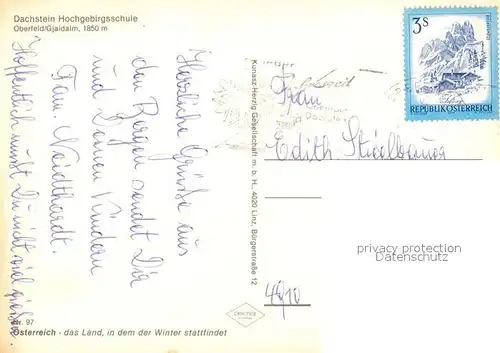 Dachstein Hochgebirgsschule
Oberfeld/Gjaidalm, 1850 m
Herzliche Grüße aus
den Bergen sendet Dir
und Deinen Kindern
Fam. Neidthardt.
Hoffentlich mußt Du nicht viel
Nr. 97
Österreich - das Land, in dem der Winter stattfindet
Konasz-Herzig Gesellschaft m. b. H., 4020 Linz, Bürgerstraße 12
3S
REPUBLIK ÖSTERREICH
Frau
Edith
4810
privacy protection
Datenschutz